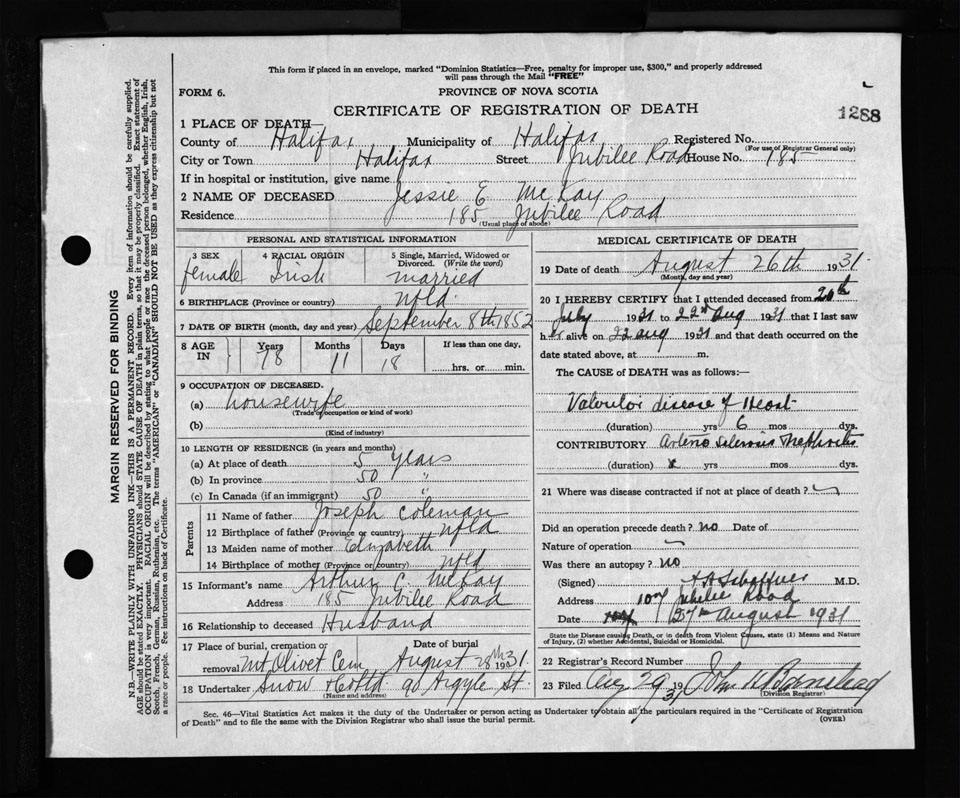 This form if placed in an envelope, marked "Dominion Statistics—Free, penalty for improper use, $300," and properly addressed
will pass through the Mail "FREE"
FORM 6.
PROVINCE OF NOVA SCOTIA
CERTIFICATE OF REGISTRATION OF DEATH
1288
1 PLACE OF DEATH—
County of Halifax Municipality of Halifax Registered No.
(For use of Registrar General only)
City or Town Halifax Street Jubilee Road House No. 185
If in hospital or institution, give name
2 NAME OF DECEASED Jessie E McKay
Residence 185 Jubilee Road
(Usual place of abode)
PERSONAL AND STATISTICAL INFORMATION
3 SEX 4 RACIAL ORIGIN 5 Single, Married, Widowed or
Divorced. (Write the word)
female Irish married
6 BIRTHPLACE (Province or country) Nfld.
7 DATE OF BIRTH (month, day and year) September 8th 1852
8 AGE IN Years Months Days If less than one day,
78 11 18 hrs. or min.
9 OCCUPATION OF DECEASED.
(a) housewife
(Trade, occupation or kind of work)
(b)
(Kind of industry)
10 LENGTH OF RESIDENCE (in years and months)
(a) At place of death 5 years
(b) In province 50 "
(c) In Canada (if an immigrant) 50 "
Parents
11 Name of father Joseph Coleman
12 Birthplace of father (Province or country) Nfld
13 Maiden name of mother Elizabeth
14 Birthplace of mother (Province or country) Nfld
15 Informant's name Arthur C. McKay
Address 185 Jubilee Road
16 Relationship to deceased Husband
17 Place of burial, cremation or Date of burial
removal Mt Olivet Cem August 28th 1931.
18 Undertaker Snow & Co Ltd 90 Argyle St.
(Name and address)
MEDICAL CERTIFICATE OF DEATH
19 Date of death August 26th 1931.
(Month, day and year)
20 I HEREBY CERTIFY that I attended deceased from 20th
July 1931 to 22nd Aug 1931 that I last saw
her alive on 22 Aug 1931 and that death occurred on the
date stated above, at m.
The CAUSE of DEATH was as follows:—
Valvular disease of Heart
(duration) yrs 6 mos dys.
CONTRIBUTORY Arterio Sclerosis Nephritis
(duration) yrs mos dys.
21 Where was disease contracted if not at place of death?
Did an operation precede death? no Date of
Nature of operation
Was there an autopsy? no
(Signed) M.D.
Address 107 Jubilee Road
Date 27th August 1931
State the Disease causing Death, or in death from Violent Causes, state (1) Means and Nature
of Injury, (2) whether Accidental, Suicidal or Homicidal.
22 Registrar's Record Number
23 Filed Aug 29 1931 John
(Division Registrar)
Sec. 46—Vital Statistics Act makes it the duty of the Undertaker or person acting as Undertaker to obtain all the particulars required in the "Certificate of Registration
of Death" and to file the same with the Division Registrar who shall issue the burial permit.
(OVER)
MARGIN RESERVED FOR BINDING
N.B.—WRITE PLAINLY WITH UNFADING INK—THIS IS A PERMANENT RECORD. Every item of information should be carefully supplied.
AGE should be stated EXACTLY. PHYSICIANS should STATE CAUSE OF DEATH in plain terms, so that it may be properly classified. Exact statement of
OCCUPATION is very important. RACIAL ORIGIN will be described by stating to what people or race the deceased person belonged, whether English, Irish,
Scotch, French, German, Russian, Ruthenian, etc. The terms "AMERICAN" or "CANADIAN" SHOULD NOT BE USED as they express citizenship but not
a race or people. Fee instructions on back of Certificate.